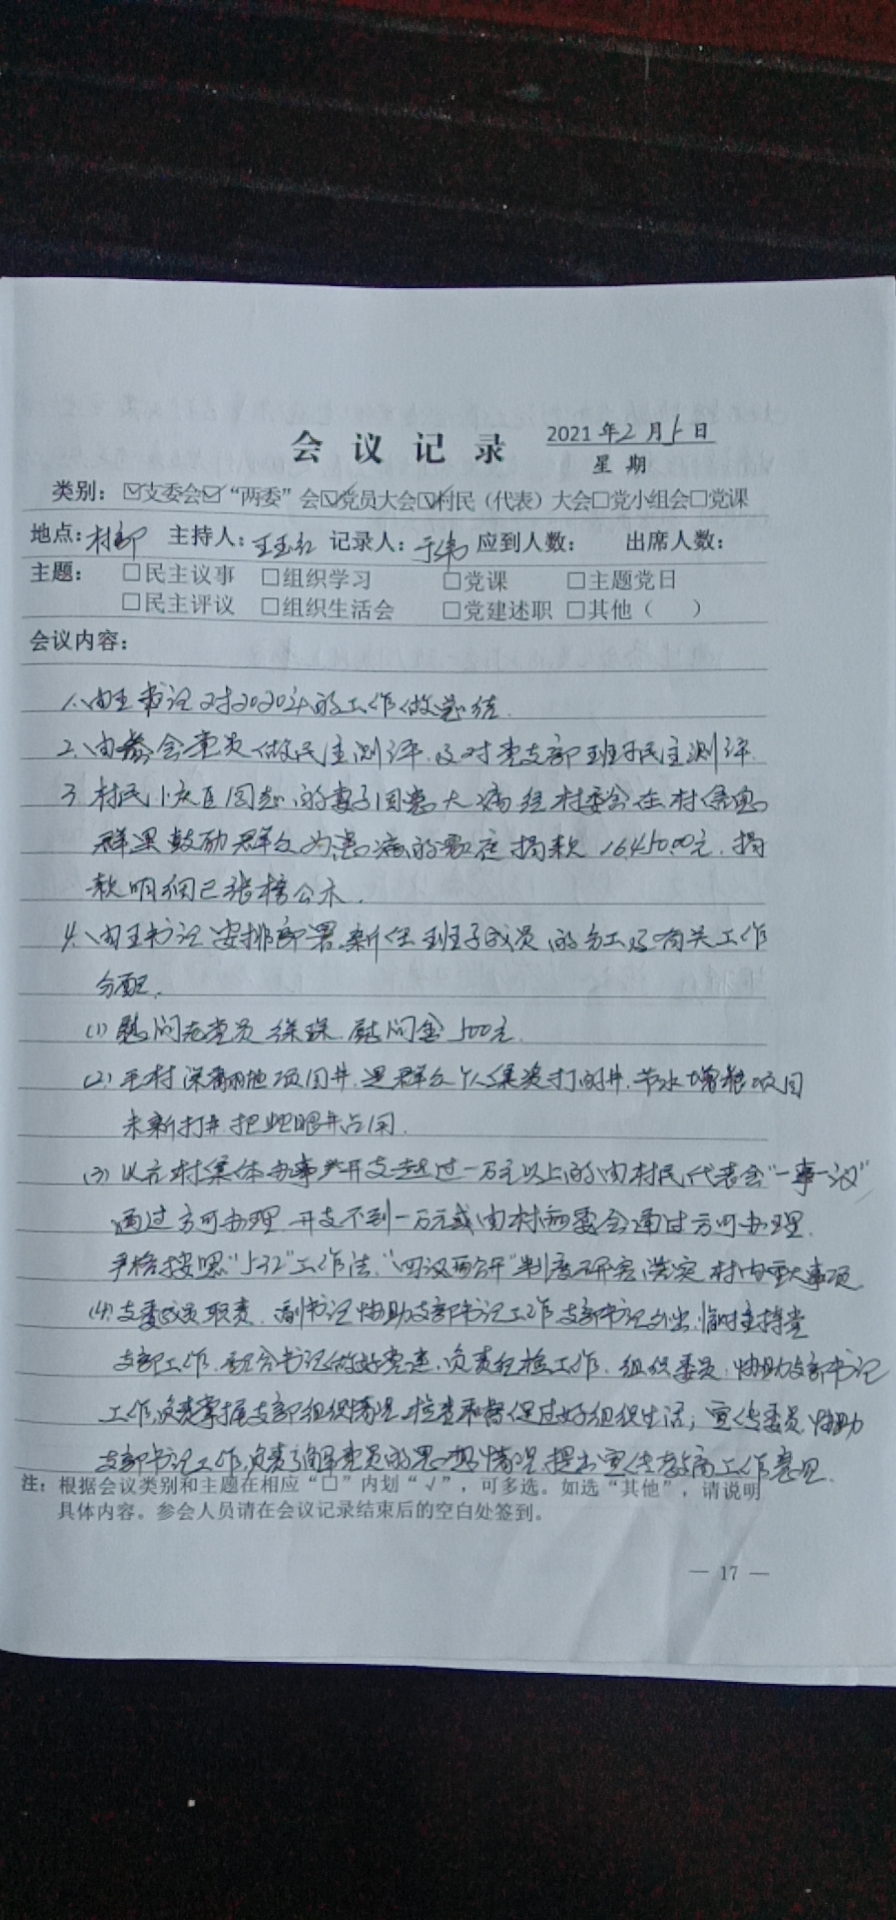 会议记录 2021年2月5日
星期
类别：☑支委会☑“两委”会☑党员大会☑村民（代表）大会□党小组会□党课
地点：村部 主持人：王玉红 记录人：于伟 应到人数： 出席人数：
主题： □民主议事 □组织学习 □党课 □主题党日
□民主评议 □组织生活会 □党建述职 □其他（ ）
会议内容：
1.由王书记对2020年的工作做总结.
2.由参会党员做民主测评.及对党支部班子民主测评.
3.村民 的妻子因患大病经村委会在村信息
群里鼓励群众为患病的家庭捐款16450.00元.捐
款明细已张榜公示.
4.由王书记安排部署.新任班子成员的分工及有关工作
分配.
(1)慰问老党员徐珠.慰问金500元.
(2) 村深翻地项目井.是群众个人集资打的井.节水增粮项目
未新打井把 眼井占用.
(3)以后村集体办事开支超过一万元以上的由村民代表会“一事一议”
通过方可办理.开支不到一万元或由村两委会通过方可办理.
严格按照“532”工作法.“四议两公开”制度研究落实村内重大事项
(4)支委成员职责.副书记协助支部书记工作.支部书记外出.临时主持党
支部工作.配合书记做好党建.负责纪检工作.组织委员:协助支部书记
工作,负责掌握支部组织情况.检查和督促过好组织生活;宣传委员.协助
支部书记工作,负责了解党员的思想情况.提出宣传教育工作意见.
注：根据会议类别和主题在相应“□”内划“√”，可多选。如选“其他”，请说明
具体内容。参会人员请在会议记录结束后的空白处签到。
— 17 —